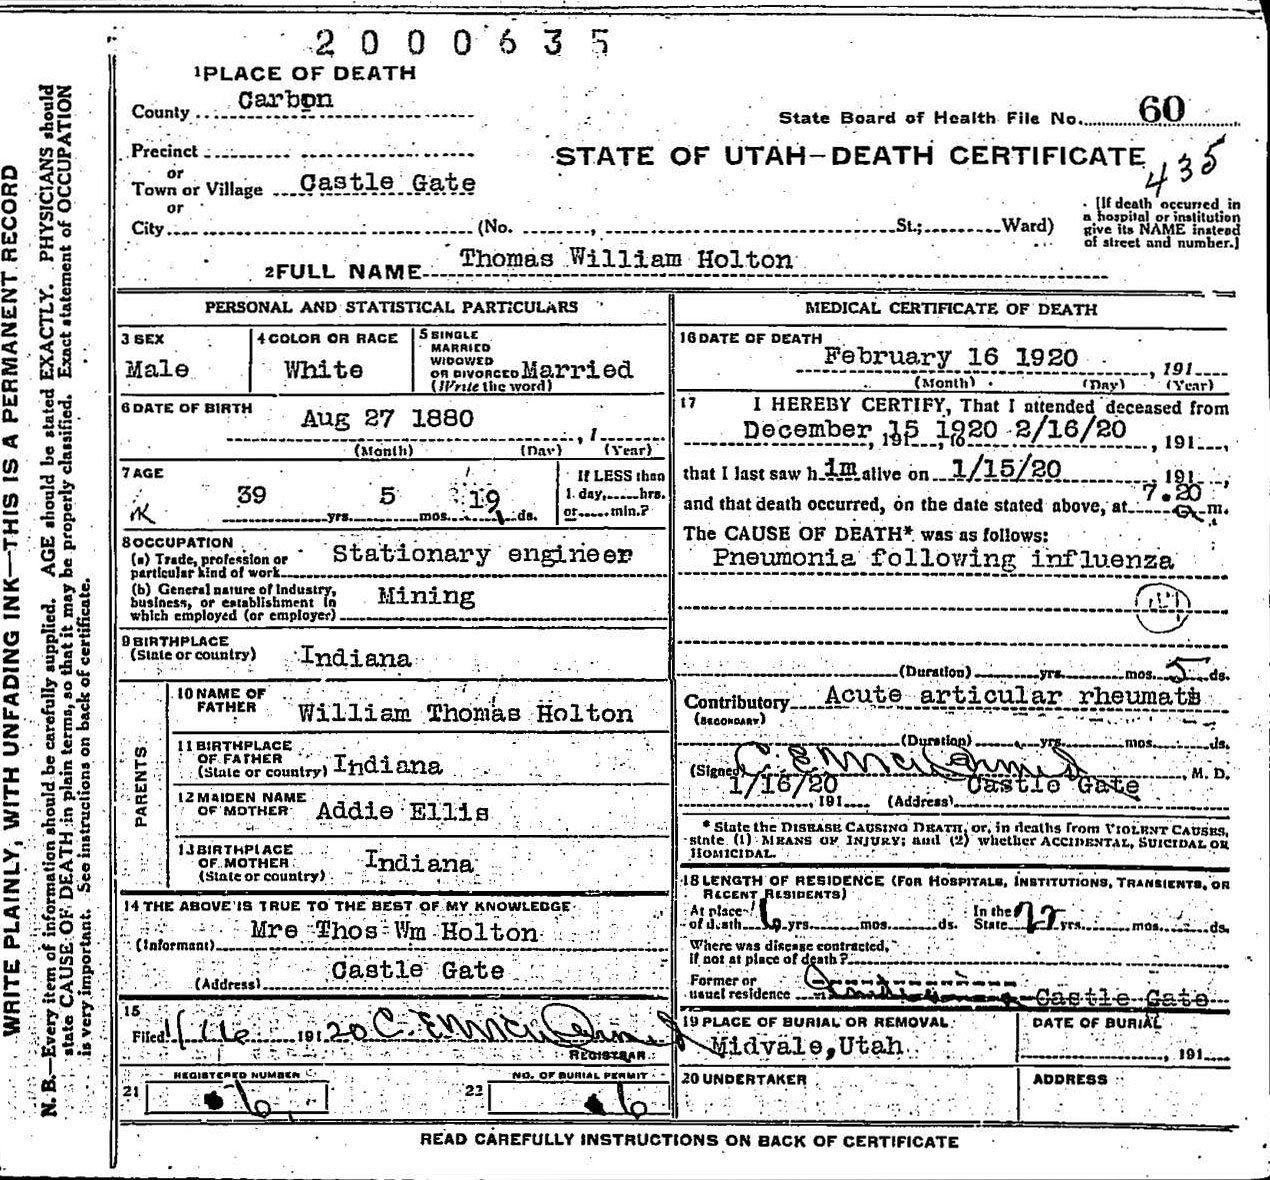 2000635
1 PLACE OF DEATH
County Carbon
State Board of Health File No. 60
Precinct
STATE OF UTAH—DEATH CERTIFICATE
435
or
Town or Village Castle Gate
or
City (No. , St.; Ward)
[If death occurred in
a hospital or institution
give its NAME instead
of street and number.]
2 FULL NAME Thomas William Holton
PERSONAL AND STATISTICAL PARTICULARS
3 SEX
Male
4 COLOR OR RACE
White
5 SINGLE
MARRIED
WIDOWED
OR DIVORCED Married
(Write the word)
6 DATE OF BIRTH
Aug 27 1880 , 1
(Month) (Day) (Year)
7 AGE
39 yrs. 5 mos. 19 ds.
If LESS than
1 day, hrs.
or min.?
8 OCCUPATION
(a) Trade, profession or
particular kind of work Stationary engineer
(b) General nature of Industry,
business, or establishment in
which employed (or employer) Mining
9 BIRTHPLACE
(State or country) Indiana
PARENTS
10 NAME OF
FATHER William Thomas Holton
11 BIRTHPLACE
OF FATHER
(State or country) Indiana
12 MAIDEN NAME
OF MOTHER Addie Ellis
13 BIRTHPLACE
OF MOTHER
(State or country) Indiana
14 THE ABOVE IS TRUE TO THE BEST OF MY KNOWLEDGE
(Informant) Mrs Thos Wm Holton
(Address) Castle Gate
15
Filed 1/16 191 20 C. E.
REGISTRAR
REGISTERED NUMBER
21 6
NO. OF BURIAL PERMIT
22 6
MEDICAL CERTIFICATE OF DEATH
16 DATE OF DEATH
February 16 1920 , 191
(Month) (Day) (Year)
17 I HEREBY CERTIFY, That I attended deceased from
December 15 1920 2/16/20 , 191 ,
that I last saw him alive on 1/15/20 191 ,
and that death occurred, on the date stated above, at 7.20 a m.
The CAUSE OF DEATH* was as follows:
Pneumonia following influenza
(Duration) yrs. mos. 5 ds.
Contributory Acute articular rheumatis
(SECONDARY)
(Duration) yrs. mos. ds.
(Signed) C. E. , M. D.
1/16/20 , 191 (Address) Castle Gate
* State the DISEASE CAUSING DEATH, or, in deaths from VIOLENT CAUSES,
state (1) MEANS OF INJURY; and (2) whether ACCIDENTAL, SUICIDAL OR
HOMICIDAL.
18 LENGTH OF RESIDENCE (FOR HOSPITALS, INSTITUTIONS, TRANSIENTS, OR
RECENT RESIDENTS)
At place
of death 6 yrs. mos. ds. In the
State 22 yrs. mos. ds.
Where was disease contracted,
if not at place of death?
Former or
usual residence Castle Gate
19 PLACE OF BURIAL OR REMOVAL
Midvale, Utah
DATE OF BURIAL
, 191
20 UNDERTAKER
ADDRESS
READ CAREFULLY INSTRUCTIONS ON BACK OF CERTIFICATE
WRITE PLAINLY, WITH UNFADING INK—THIS IS A PERMANENT RECORD
N. B.—Every item of information should be carefully supplied. AGE should be stated EXACTLY. PHYSICIANS should
state CAUSE OF DEATH in plain terms, so that it may be properly classified. Exact statement of OCCUPATION
is very important. See instructions on back of certificate.